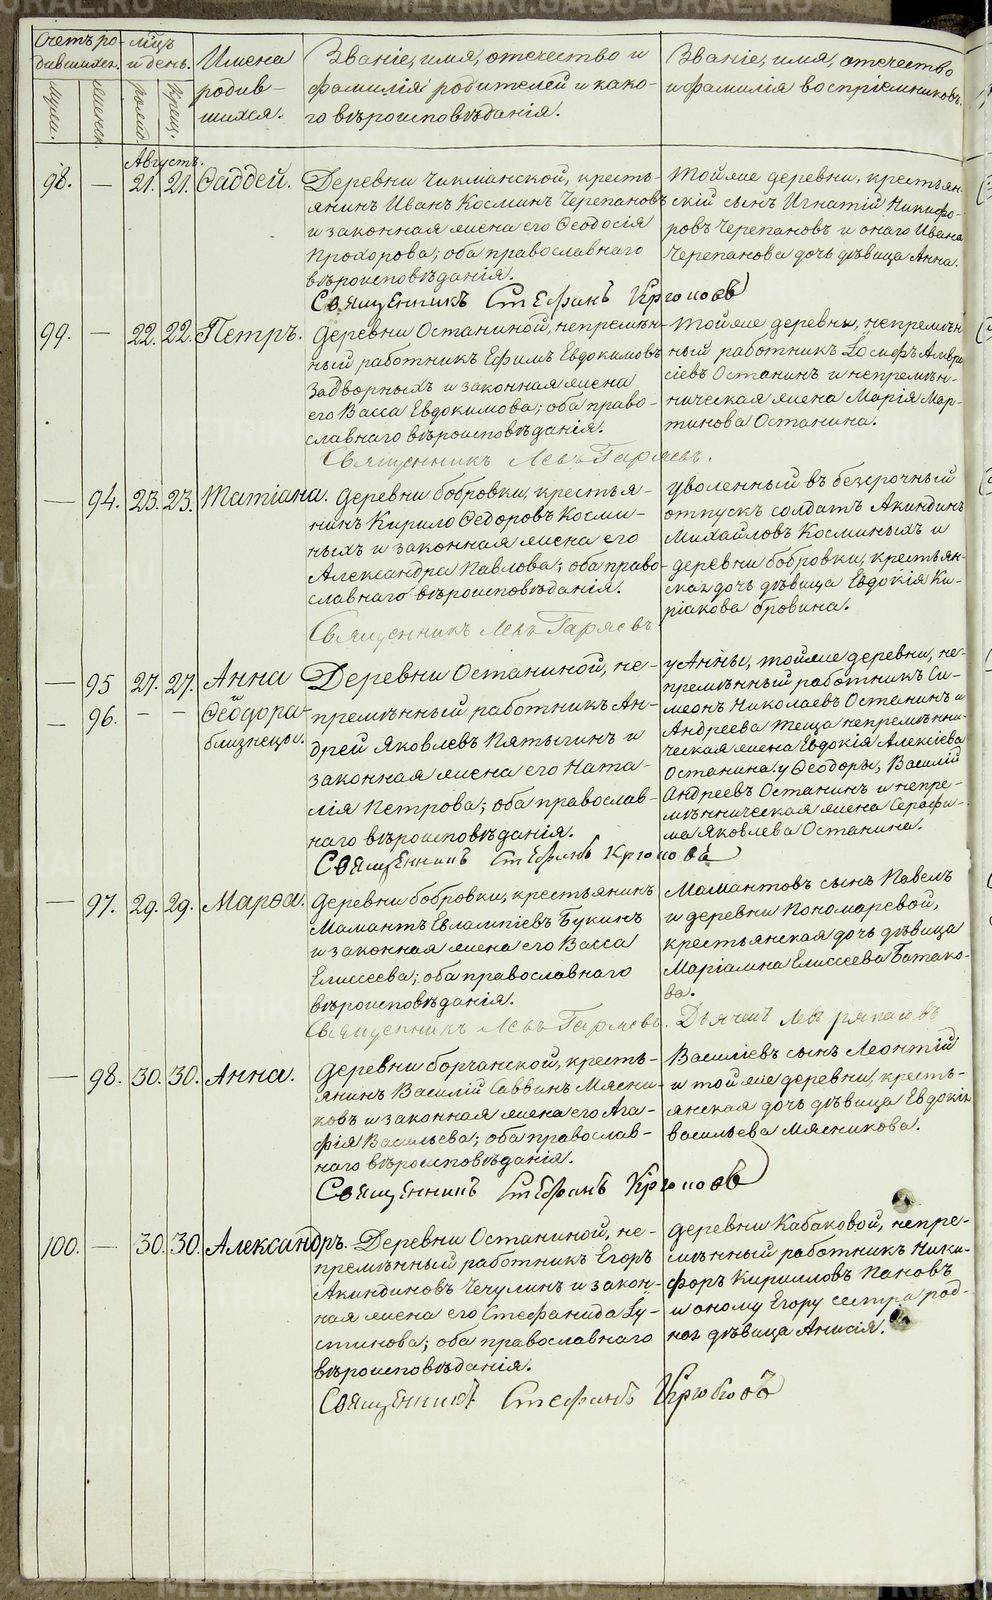 Счетъ ро-
дившихся.
мѣцъ
и день.
Имена
родив-
шихся.
Званіе, имя, отечество и
фамилія родителей и како-
го вѣроисповѣданія.
Званіе, имя, отечество
и фамилія воспріемниковъ.
мужи.
женск.
рожд.
крещ.
Августъ.
98. — 21. 21. Ѳаддей.
Деревни Чикманской, кресть-
янинъ Иванъ Косминъ Черепановъ
и законная жена его Ѳеодосія
Прохорова; оба православнаго
вѣроисповѣданія.
Той же деревни, крестьян
скій сынъ Игнатій Никифо-
ровъ Черепановъ и онаго Ивана
Черепанова дочь дѣвица Анна.
Священникъ Стефанъ
99. — 22. 22. Петръ.
Деревни Останиной, непремѣн-
ный работникъ Ефимъ Евдокимовъ
Задворныхъ и законная жена
его Васса Евдокимова; оба право-
славнаго вѣроисповѣданія.
Той же деревни, непремѣн
ный работникъ Іосифъ Амвро
сіевъ Останинъ и непремѣн-
ническая жена Марія Мар-
тинова Останина.
Священникъ Левъ Гаряевъ.
— 94. 23. 23. Татіана.
Деревни Бобровки, крестья-
нинъ Кирило Ѳедоровъ Косми-
ныхъ и законная жена его
Александра Павлова; оба право-
славнаго вѣроисповѣданія.
Уволенный въ безсрочный
отпускъ солдатъ Акиндинъ
Михайловъ Косминыхъ и
деревни Бобровки, крестьян-
ская дочь дѣвица Евдокія Ки-
ріакова Бровина.
Священникъ Левъ Гаряевъ
— 95 27. 27. Анна
— 96. — — Ѳеодора-
близнецы.
Деревни Останиной, не-
премѣнный работникъ Ан-
дрей Яковлевъ Пятыгинъ и
законная жена его Ната-
лія Петрова; оба православ-
наго вѣроисповѣданія.
у Анны, той же деревни, не-
премѣнный работникъ Си-
меонъ Николаевъ Останинъ и
Андреева теща непремѣнни-
ческая жена Евдокія Алексіева
Останина. у Ѳеодоры, Василій
Андреевъ Останинъ и непре-
мѣнническая жена Серафи-
ма Яковлева Останина.
Священникъ Стефанъ
— 97. 29. 29. Марѳа.
Деревни Бобровки, крестьянинъ
Мамантъ Евлампіевъ Букинъ
и законная жена его Васса
Елисеева; оба православнаго
вѣроисповѣданія.
Мамантовъ сынъ Павелъ
и деревни Пономаревой,
крестьянская дочь дѣвица
Маріамна Елиссеева Батако-
ва.
Священникъ Левъ Гаряевъ.
— 98. 30. 30. Анна.
Деревни Борчанской, кресть-
янинъ Василій Саввинъ Мясни-
ковъ и законная жена его Ага-
фія Васильева; оба православ-
наго вѣроисповѣданія.
Василіевъ сынъ Леонтій
и той же деревни, кресть-
янская дочь дѣвица Евдокія
Васильева Мясникова.
Священникъ Стефанъ
100. — 30. 30. Александръ.
Деревни Останиной, не-
премѣнный работникъ Егоръ
Акиндиновъ Чечулинъ и закон-
ная жена его Стефанида Іу-
стинова; оба православнаго
вѣроисповѣданія.
деревни Кабаковой, непре-
мѣнный работникъ Ники-
форъ Кирилловъ Пановъ
и оному Егору сестра род-
ная дѣвица Анисія.
Священникъ Стефанъ
METRIKI.GASO-URAL.RU